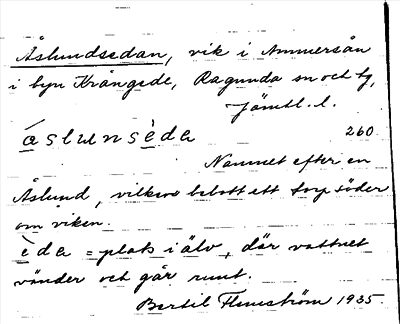 Åslundsedan, vik i Ammersån
i byn Krångede, Ragunda sn och tg,
Jämtl. l.
áslunsèda 260
Namnet efter en
Åslund, vilken bebott ett torp söder
om viken.
èda = plats i älv, där vattnet
vänder och går runt.
Bertil Flemström 1935.